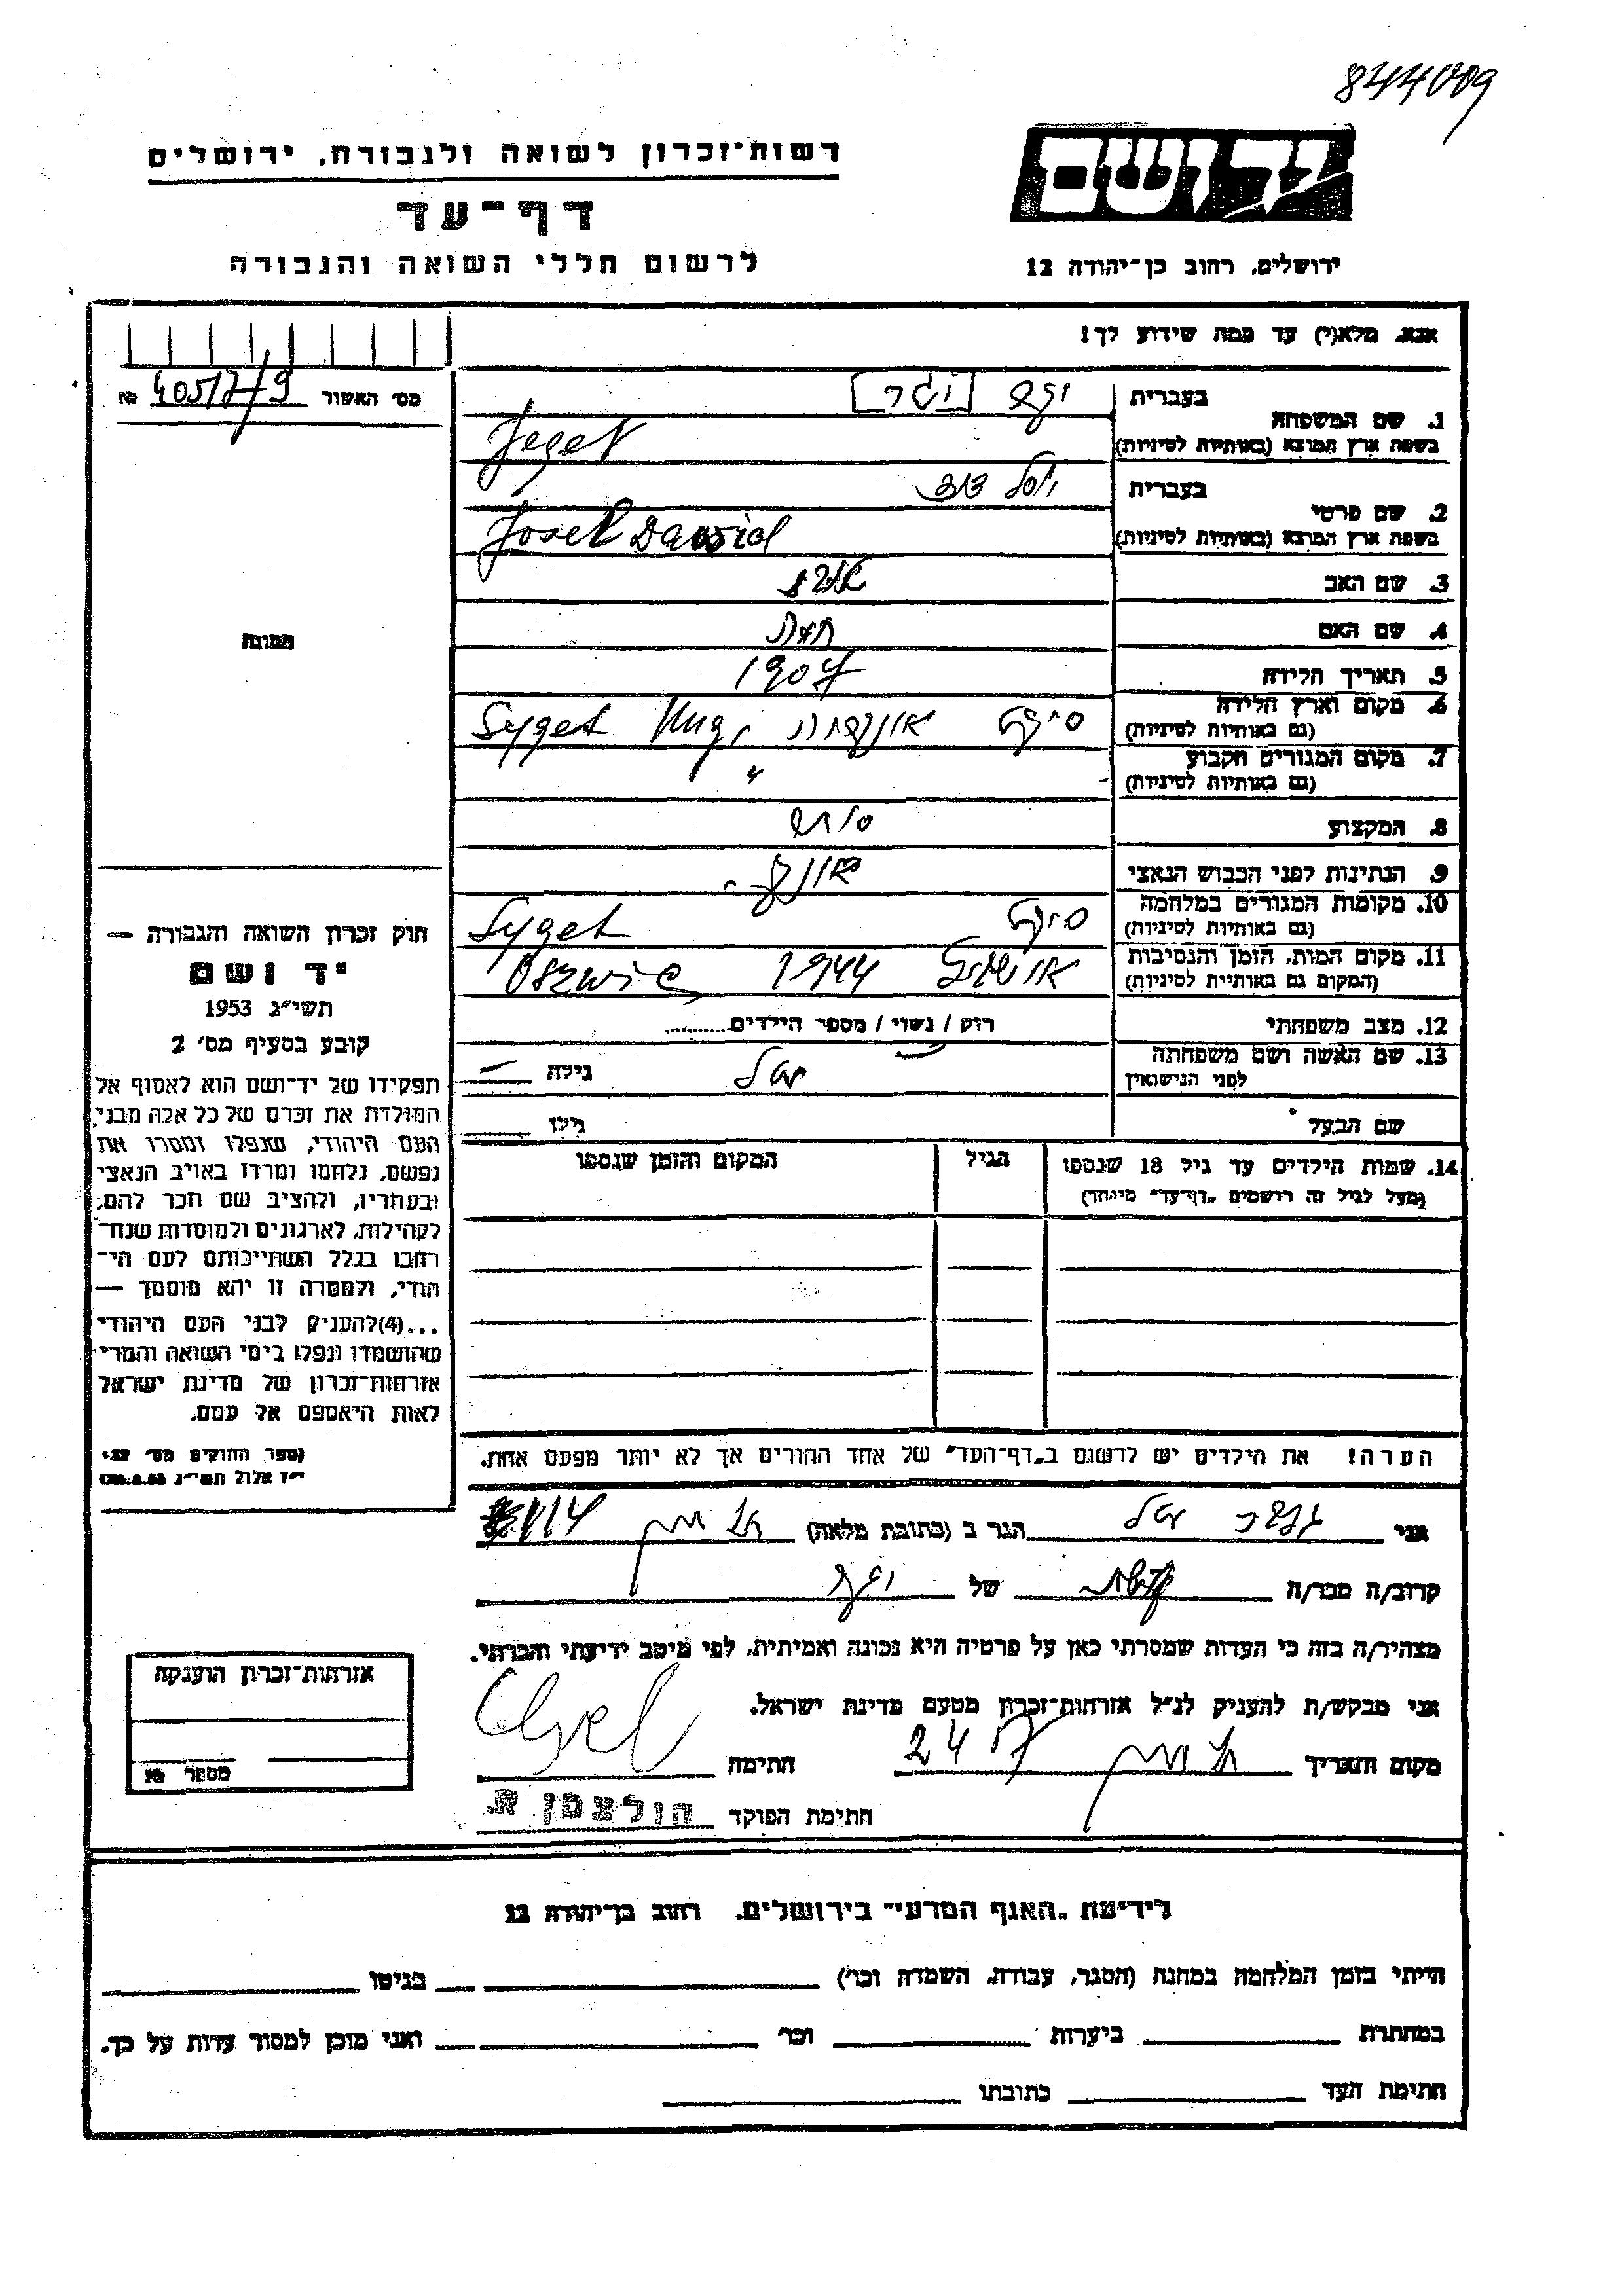 844009
רשות־זכרון לשואה ולגבורה, ירושלים
יד ושם
דף־עד
לרשום חללי השואה והגבורה
ירושלים, רחוב בן־יהודה 12
אנא, מלא(י) עד כמה שידוע לך!
מס' האשור 40517/9 №
1. שם המשפחה
בעברית
בשפת ארץ המוצא (באותיות לטיניות) Jeger
2. שם פרטי
בעברית יוסל דוד
בשפת ארץ המוצא (באותיות לטיניות) Josel Dawid
3. שם האב
4. שם האם
5. תאריך הלידה 1907
6. מקום וארץ הלידה
(גם באותיות לטיניות) סיגט Syget Ung.
7. מקום המגורים הקבוע
(גם באותיות לטיניות) "
8. המקצוע סוחר
9. הנתינות לפני הכבוש הנאצי
10. מקומות המגורים במלחמה
(גם באותיות לטיניות) סיגט Syget
11. מקום המות, הזמן והנסיבות
(המקום גם באותיית לטיניות) 1944 Oszwic
12. מצב משפחתי רוק / נשוי / מספר הילדים
13. שם האשה ושם משפחתה
לפני הנישואין גילה
שם הבעל גילו
14. שמות הילדים עד גיל 18 שנספו הגיל המקום והזמן שנספו
(מעל לגיל זה רושמים „דף־עד" מיוחד)
הערה! את הילדים יש לרשום ב„דף־העד" של אחד ההורים אך לא יותר מפעם אחת.
תמונה
חוק זכרון השואה והגבורה —
יד ושם
תשי״ג 1953
קובע בסעיף מס' 2
תפקידו של יד־ושם הוא לאסוף אל
המולדת את זכרם של כל אלה מבני
העם היהודי, שנפלו ומסרו את
נפשם, נלחמו ומרדו באויב הנאצי
ובעוזריו, ולהציב שם וזכר להם,
לקהילות, לארגונים ולמוסדות שנח־
רבו בגלל השתייכותם לעם הי־
הודי, ולמטרה זו יהא מוסמך —
...(4)להעניק לבני העם היהודי
שהושמדו ונפלו בימי השואה והמרי
אזרחות־זכרון של מדינת ישראל
לאות היאספם אל עמם.
(ספר החוקים מס'
י״ז אלול תשי״ג
אני הגר ב (כתובת מלאה)
קרוב/ה מכר/ה של
מצהיר/ה בזה כי העדות שמסרתי כאן על פרטיה היא נכונה ואמיתית, לפי מיטב ידיעתי והכרתי.
אני מבקש/ת להעניק לנ״ל אזרחות־זכרון מטעם מדינת ישראל.
מקום ותאריך חתימה
חתימת הפוקד הולצמן א.
אזרחות־זכרון הוענקה
מספר №
לידיעת „האגף המדעי" בירושלים, רחוב בן־יהודה 12
הייתי בזמן המלחמה במחנה (הסגר, עבודה, השמדה וכו') בגיטו
במחתרת ביערות וכו' ואני מוכן למסור עדות על כך.
חתימת העד כתובתו